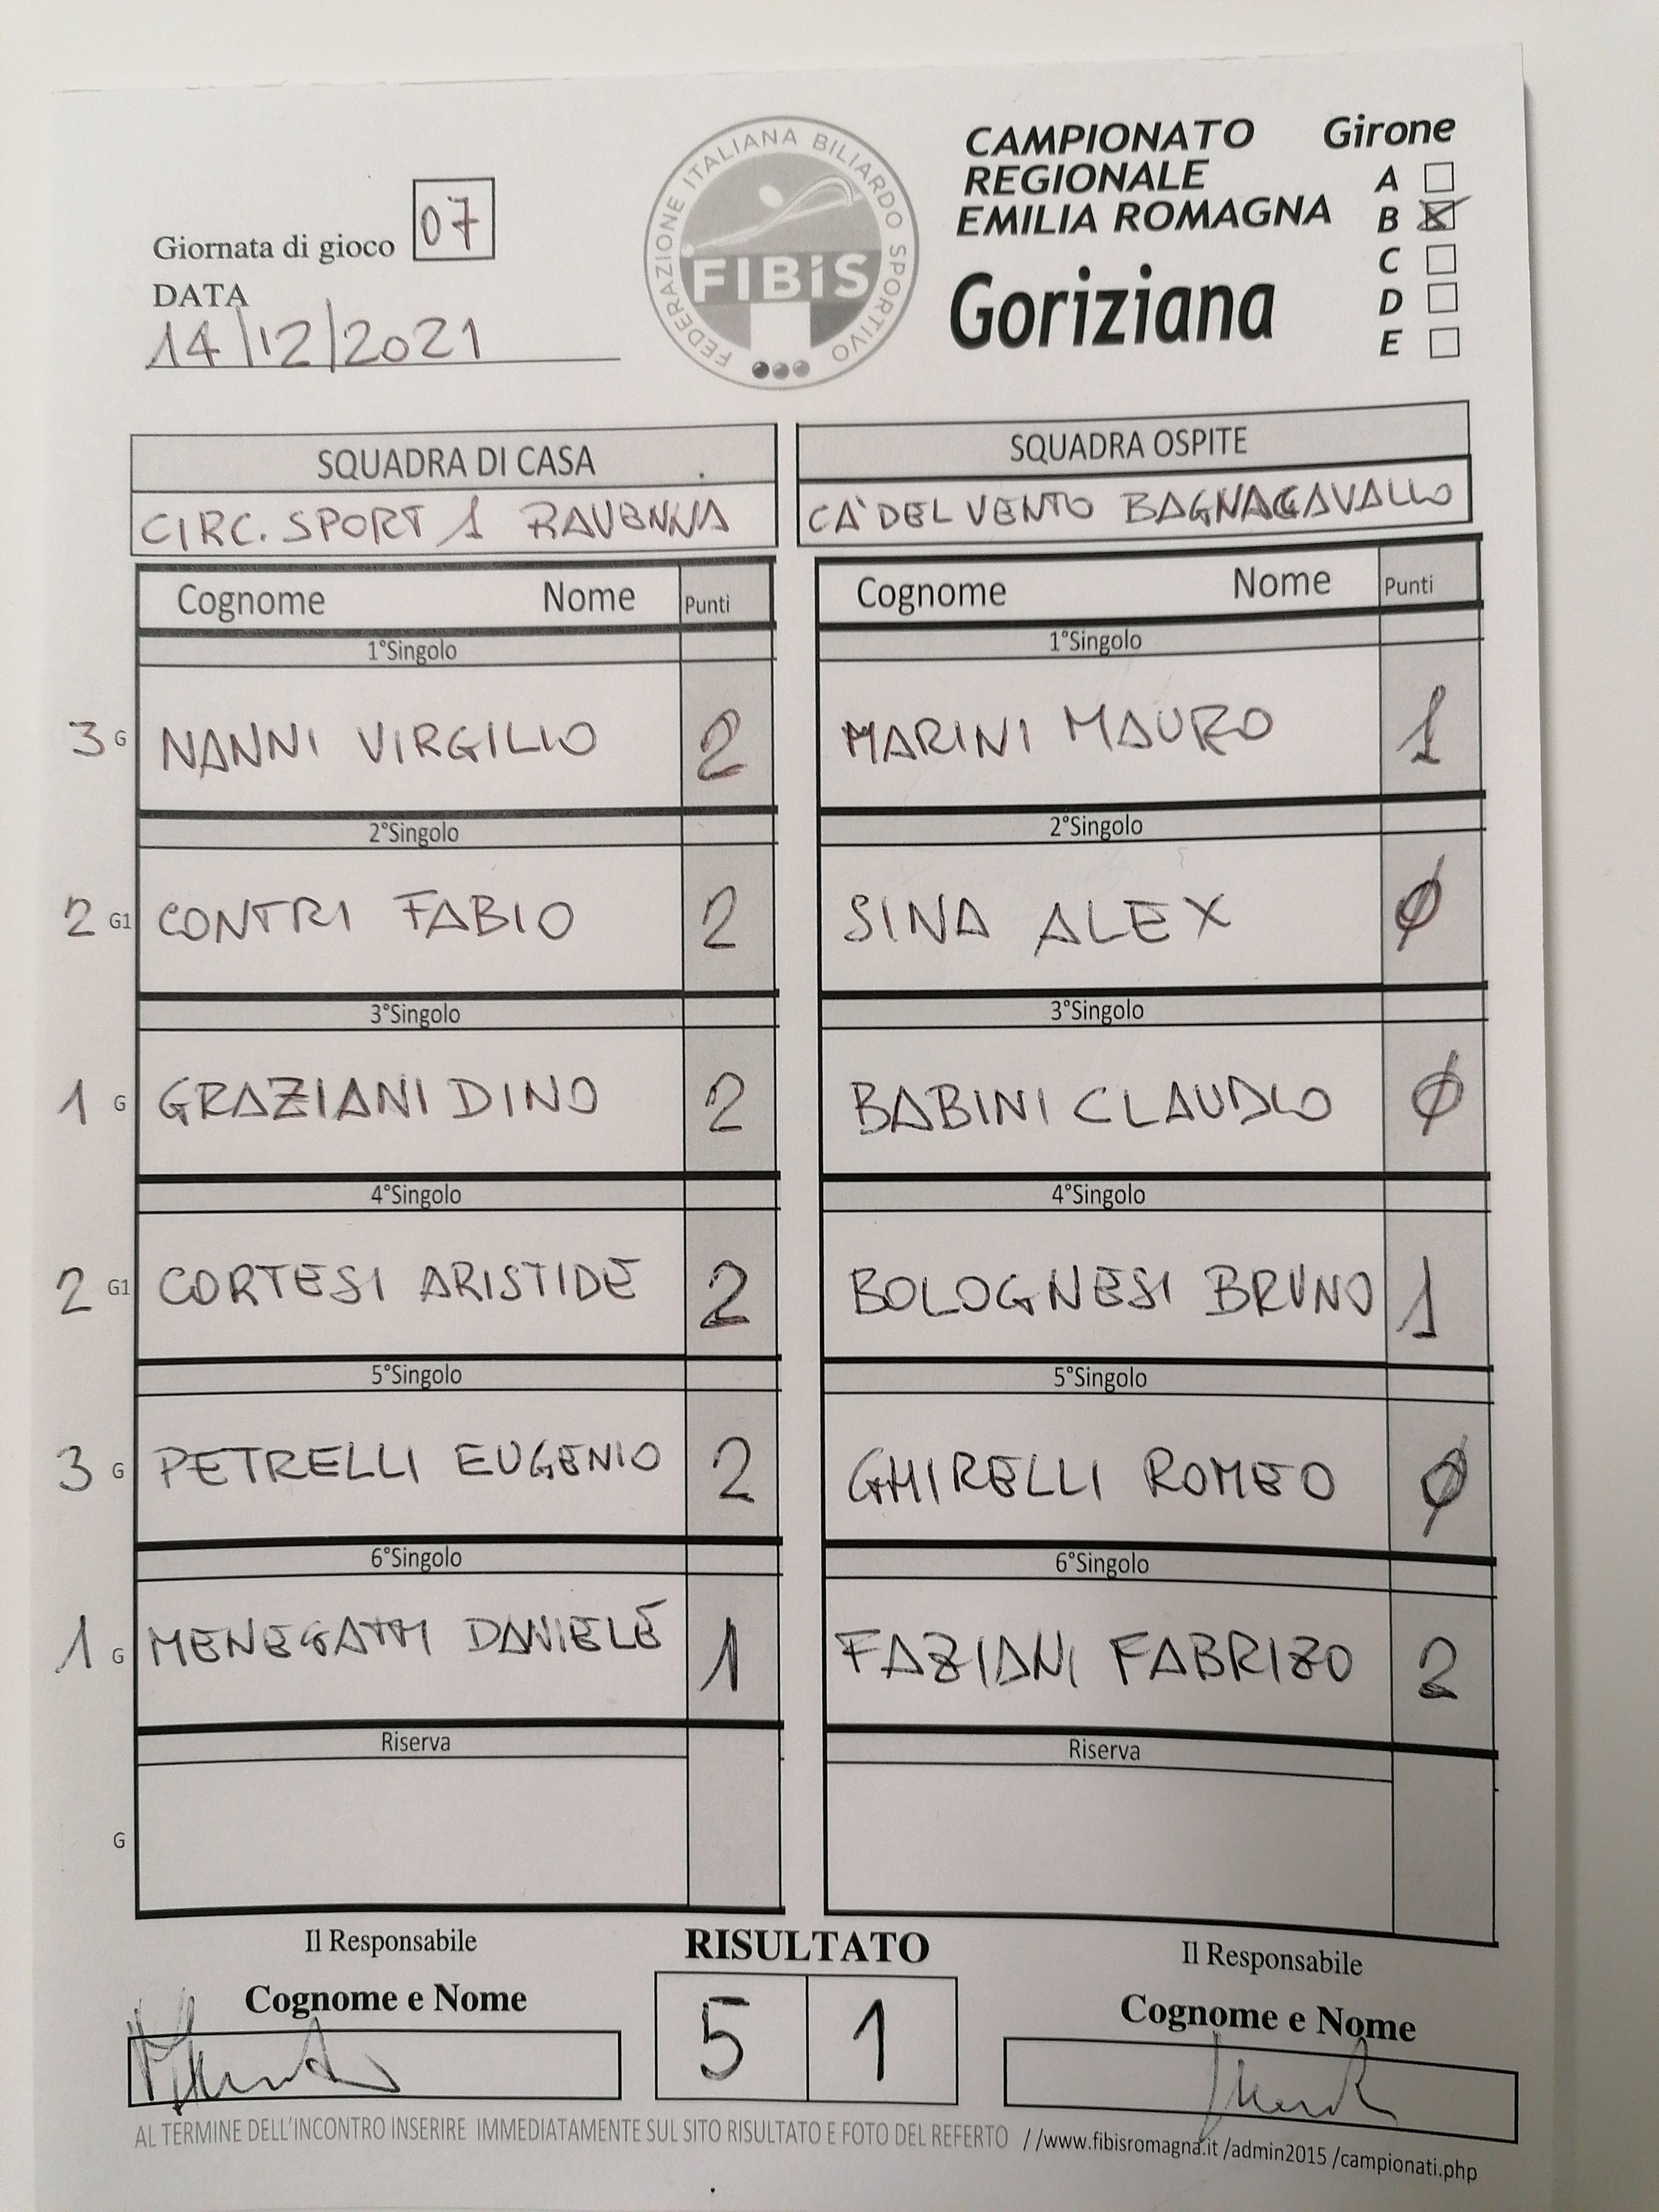 FEDERAZIONE ITALIANA BILIARDO SPORTIVO
FIBiS
CAMPIONATO Girone
REGIONALE A
EMILIA ROMAGNA B
C
Goriziana D
E
Giornata di gioco 07
DATA
14/12/2021
SQUADRA DI CASA SQUADRA OSPITE
CIRC. SPORT 1 RAVENNA CA' DEL VENTO BAGNACAVALLO
Cognome Nome Punti Cognome Nome Punti
1°Singolo 1°Singolo
3 G NANNI VIRGILIO 2 MARINI MAURO 1
2°Singolo 2°Singolo
2 G1 CONTRI FABIO 2 SINA ALEX Ø
3°Singolo 3°Singolo
1 G GRAZIANI DINO 2 BABINI CLAUDIO Ø
4°Singolo 4°Singolo
2 G1 CORTESI ARISTIDE 2 BOLOGNESI BRUNO 1
5°Singolo 5°Singolo
3 G PETRELLI EUGENIO 2 GHIRELLI ROMEO Ø
6°Singolo 6°Singolo
1 G MENEGATTI DANIELE 1 FAZIANI FABRIZO 2
Riserva Riserva
G
Il Responsabile RISULTATO Il Responsabile
Cognome e Nome 5 1 Cognome e Nome
AL TERMINE DELL'INCONTRO INSERIRE IMMEDIATAMENTE SUL SITO RISULTATO E FOTO DEL REFERTO //www.fibisromagna.it /admin2015 /campionati.php